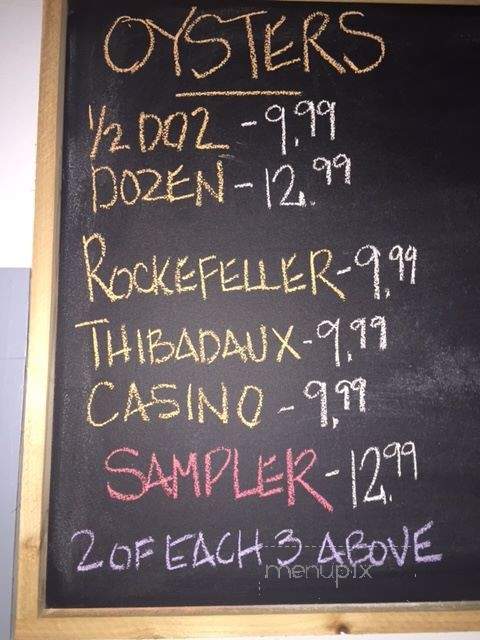 OYSTERS
1/2 DOZ - 9.99
DOZEN - 12.99
ROCKEFELLER - 9.99
THIBADAUX - 9.99
CASINO - 9.99
SAMPLER - 12.99
2 OF EACH 3 ABOVE
menupix